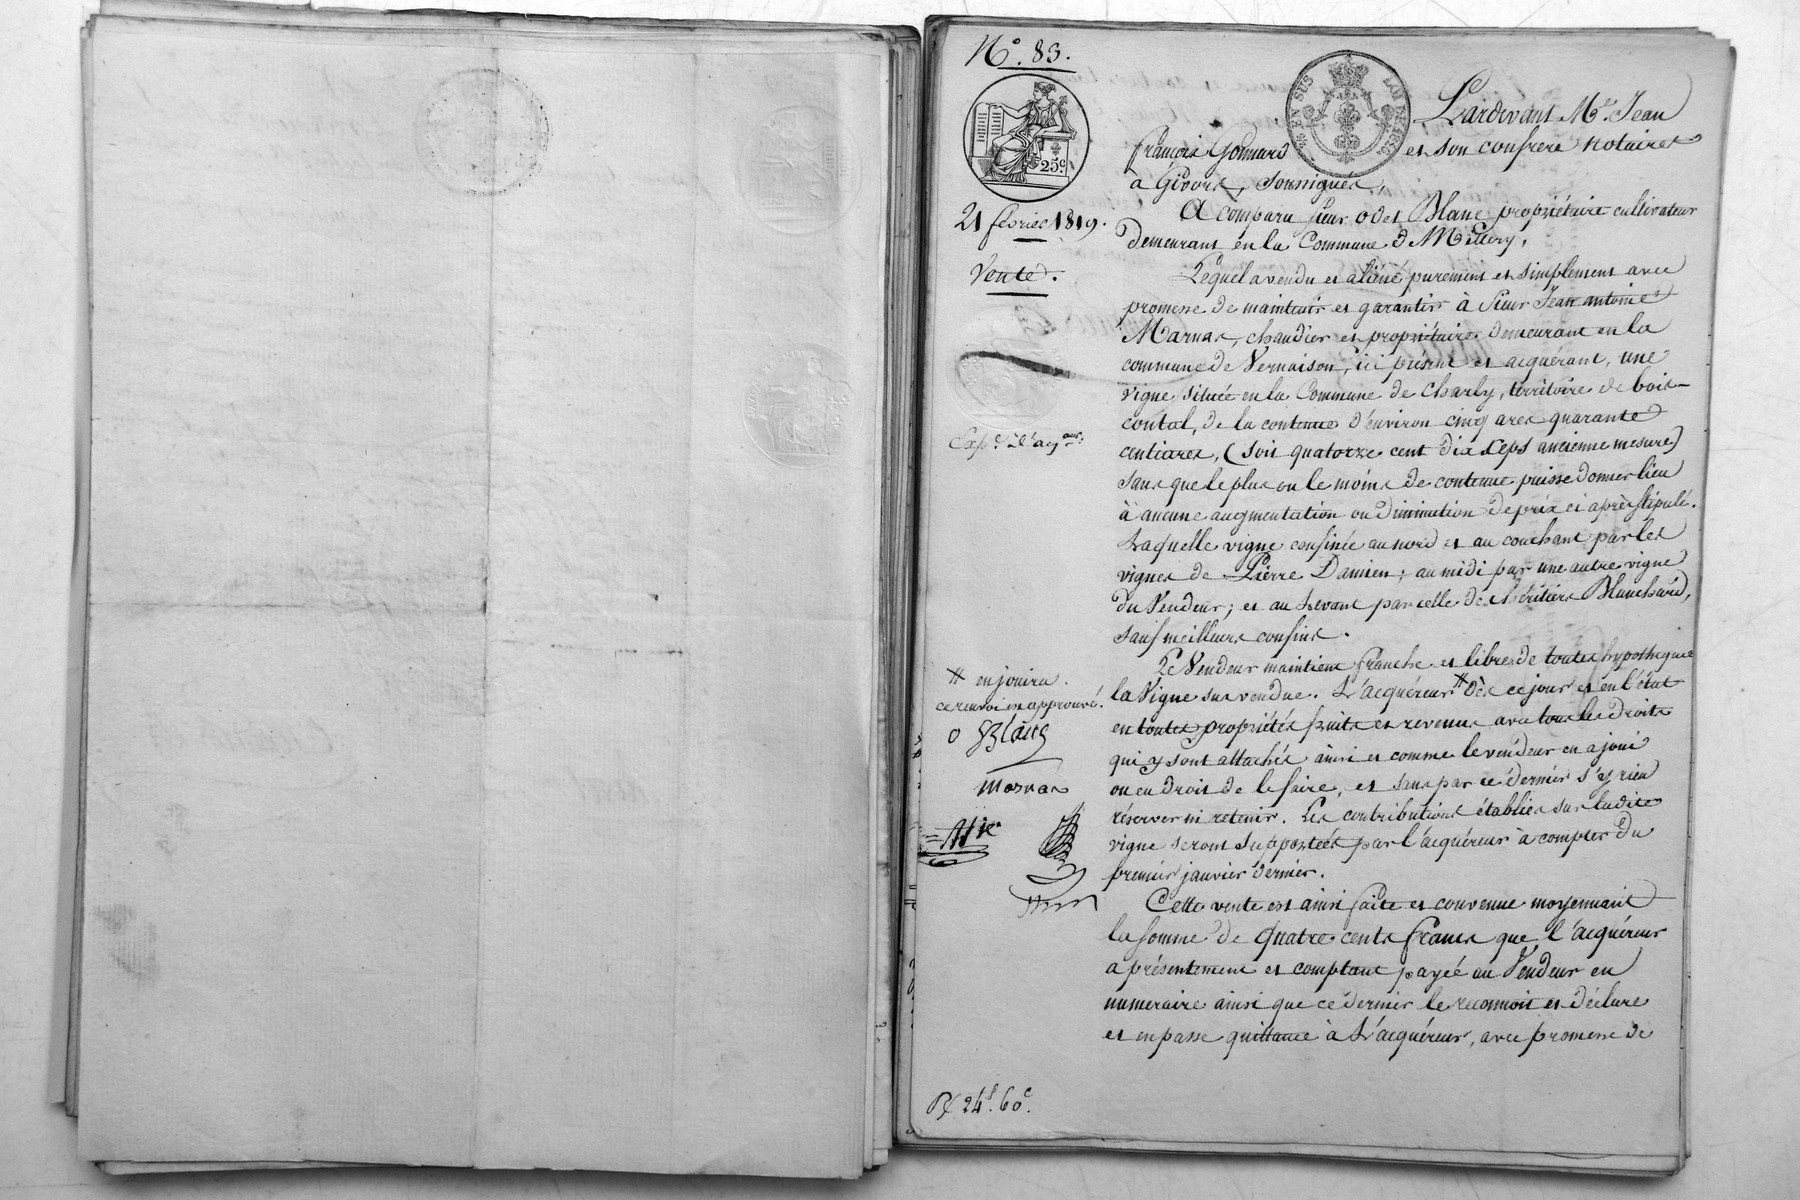 N.° 83.
EN SUS
25.c
21 février 1819.
Vente.
Exp.é à l'acq.eur
Pardevant M.e Jean
françois Gonnard et son confrere notaires
à Givors, soussignés,
A comparu sieur odet Blanc propriétaire cultivateur
demeurant en la Commune de Millery,
Lequel a vendu et aliéné purement et simplement avec
promesse de maintenir et garantir à sieur Jean antoine
Marnas, chaudier et propriétaire demeurant en la
commune de Vernaison, ici présent et acquérant, une
vigne située en la Commune de Charly, territoire de bois-
contal, de la contenue d'environ cinq ares quarante
centiares, (soit quatorze cent dix ceps ancienne mesure)
sans que le plus ou le moins de contenue puisse donner lieu
à aucune augmentation ou diminution de prix ci après stipulé.
Laquelle vigne confinée au nord et au couchant par les
vignes de Pierre Damien; au midi par une autre vigne
du Vendeur; et au Levant par celle des héritiers Blanchard,
sauf meilleurs confins.
Le Vendeur maintient franche et libre de toutes hypotheque
la Vigne sus vendue. L'acquéreur # dès ce jour et en l'état
en toutes propriétés fruits et revenus avec tous les droits
qui y sont attachés ainsi et comme le vendeur en a joui
ou eu droit de le faire, et sans par ce dernier s'y rien
réserver ni retenir. Les contributions établies sur ladite
vigne seront supportées par l'acquéreur à compter du
premier janvier dernier.
Cette vente est ainsi faite et convenue moyennant
la somme de quatre cents francs que l'acquéreur
a présentement et comptant payée au Vendeur en
numeraire ainsi que ce dernier le reconnoit et déclare
et en passe quittance à L'acquéreur, avec promesse de
# en jouira.
ce renvoi est approuvé.
O Blanc
Marnas
R/ 24f. 60c.